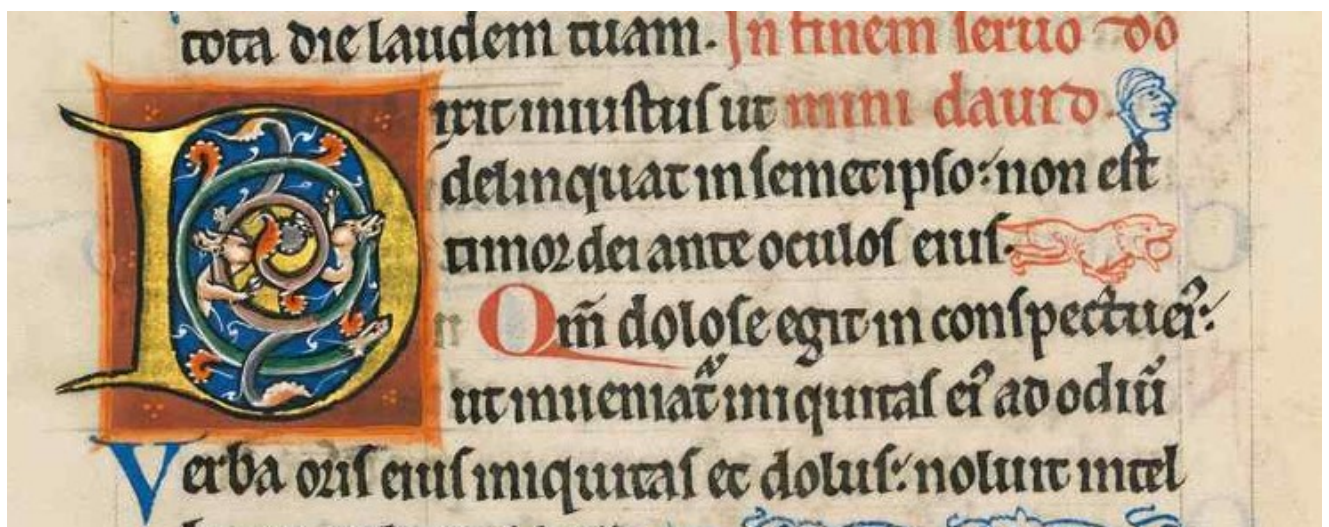 tota die laudem tuam. In finem seruo do
Dixit iniustus ut mini dauid.
delinquat in semetipso: non est
timor dei ante oculos eius.
Qm̄ dolose egit in conspectu ei᷒:
ut inueniat᷑ iniquitas ei᷒ ad odiū
Verba oris eius iniquitas et dolus: noluit intel